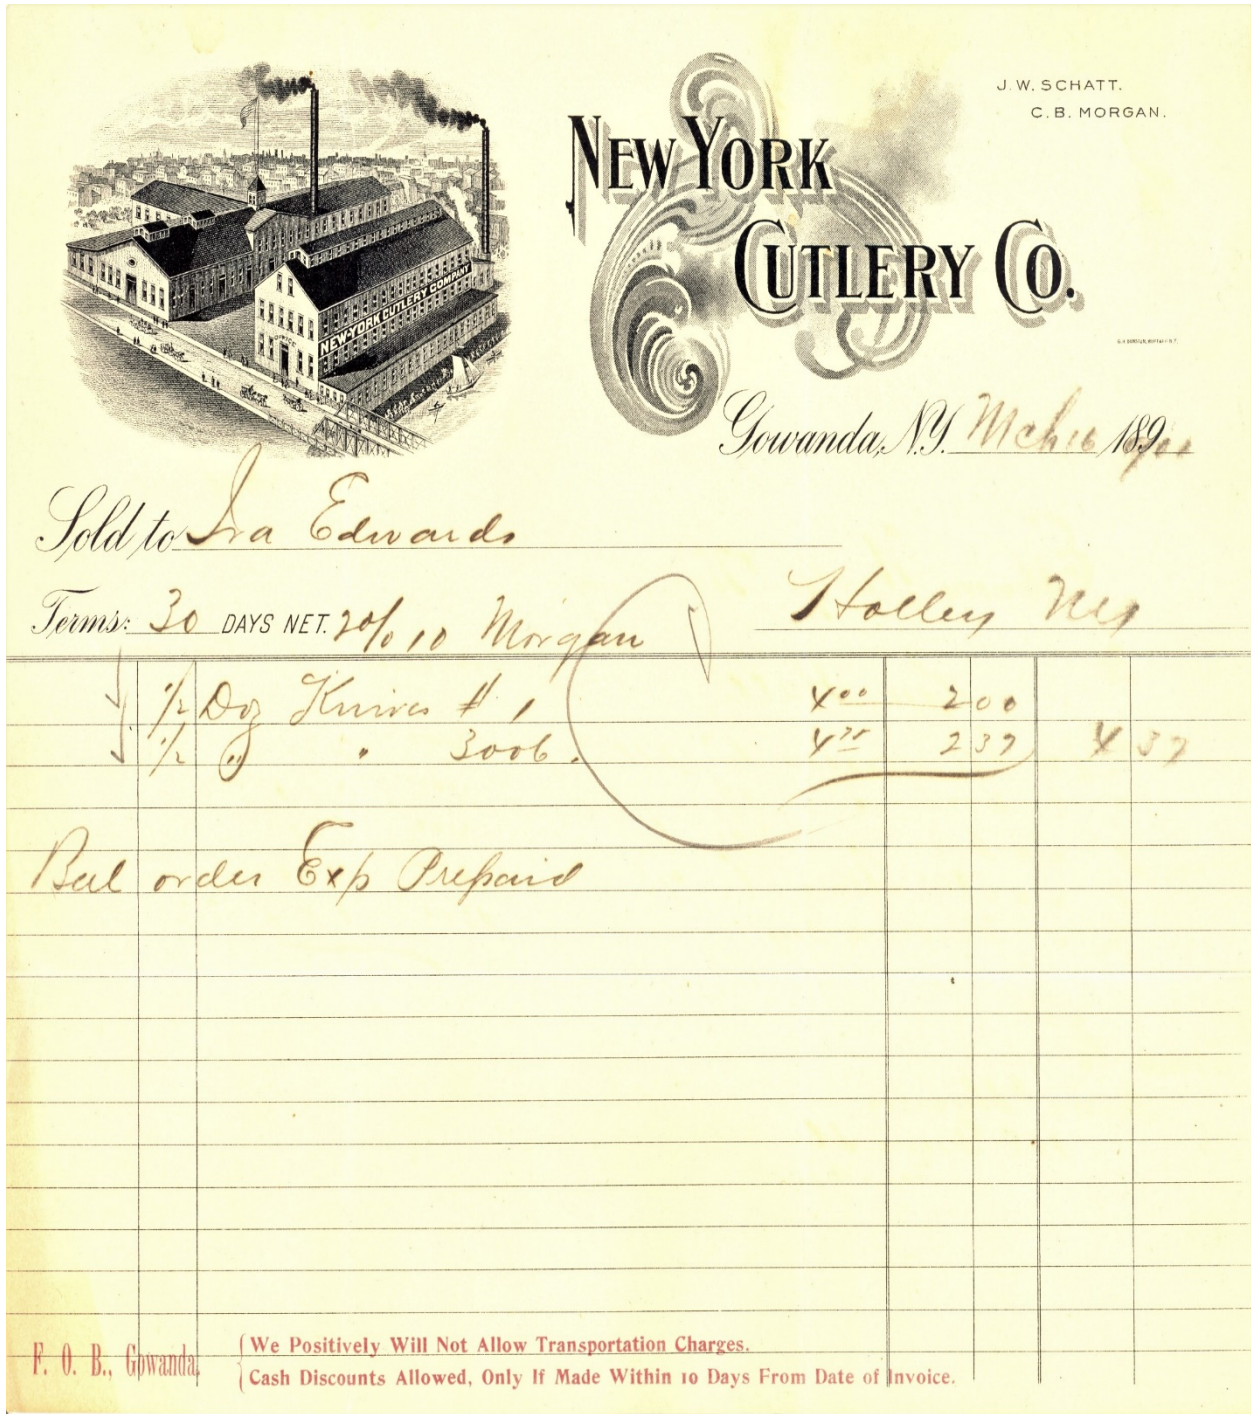 J. W. SCHATT.
C. B. MORGAN.
NEW YORK
CUTLERY CO.
NEW-YORK CUTLERY COMPANY
OFFICE
Gowanda, N.Y. Mch 16 1900
Sold to Ira Edwards
Holley NY
Terms: 30 DAYS NET. 2%10 Morgan
1/2 Doz Knives # 1 4 00 2 00
1/2 " " 3006. 4 75 2 37 4 37
Bal order Exp Prepaid
F. O. B., Gowanda,
We Positively Will Not Allow Transportation Charges.
Cash Discounts Allowed, Only If Made Within 10 Days From Date of Invoice.